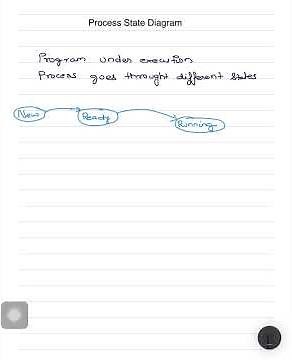 Process State Diagram
Program under execution
Process goes throught different States
New
Ready
Running